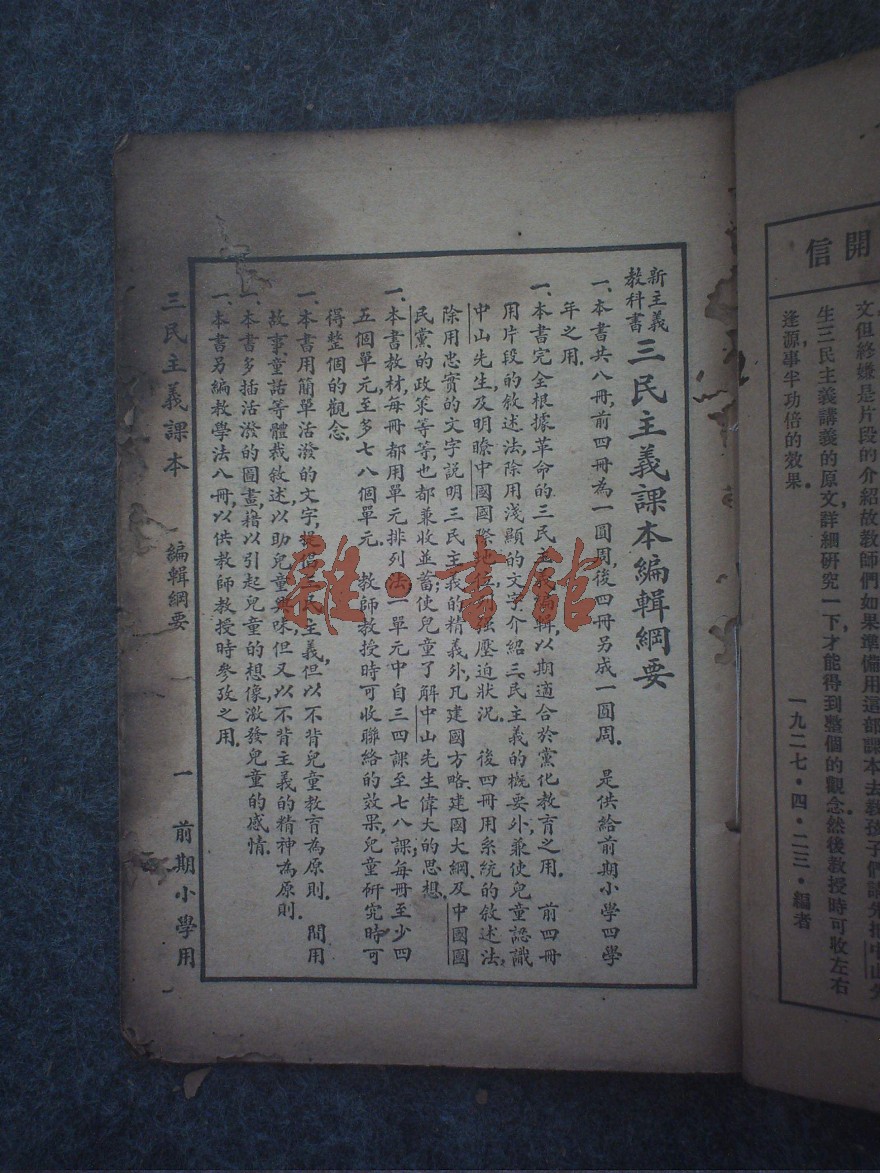 信開
文但終嫌是片段的介紹故教師們如果準備用這部課本去教孩子們請先把中山先
生三民主義講義的原文詳細研究一下,才能得到整個的觀念,然後教授時可收左右
逢源,事半功倍的效果。
一九二七·四·二三·編者
新主義教科書 三民主義課本編輯綱要
一、本書共八冊,前四冊為一圓周,後四冊另成一圓周。 是供給前期小學四學
年之用。
一、本書完全根據革命的三民主義編輯,以期適合於黨化教育之用。 前四冊
用片段的敘述法,除用淺顯的文字介紹三民主義的概要外,兼使兒童認識
中山先生,及明瞭中國國際地位,強壓迫狀況。 後四冊用系統的敘述法,
除用忠實的文字說明三民主義的精義外,凡建國方略,建國大綱,及中國國
民黨的政策等等,也都兼收並蓄;使兒童了解中山先生偉大的思想。
一、本書教材,每冊都用單元排列法,一單元中自三四課至七八課;每冊至少四
五個單元,至多七八個單元。 教師教授時可收聯絡的效果,兒童研究時可
得整個的觀念。
一、本書用簡單活潑的文字,提倡三民主義,但以不背兒童教育為原則。 間用
故事,童話等體裁敘述,以助兒童興味,但又以不背主義的精神為原則。
一、本書多插活潑的圖畫,藉以引起兒童的想像,激發兒童的感情。
一、本書另編教學法八冊,以供教師教授時參攷之用。
三民主義課本 編輯綱要 一 前期小學用
雜·書館